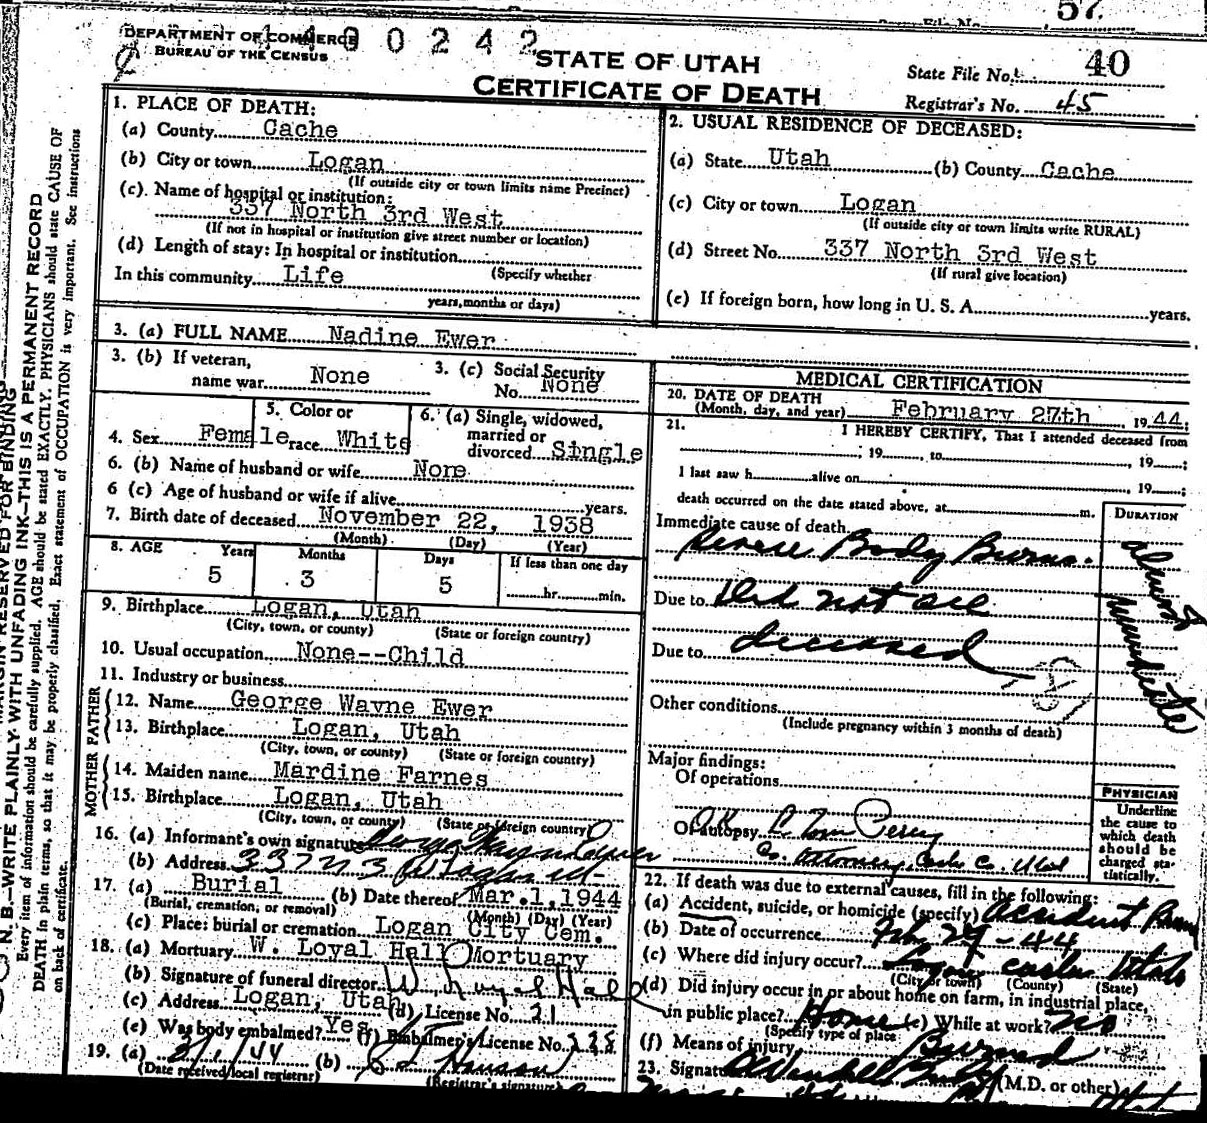 57
DEPARTMENT OF COMMERCE
BUREAU OF THE CENSUS
490242
STATE OF UTAH
CERTIFICATE OF DEATH
State File No. 40
Registrar's No. 45
1. PLACE OF DEATH:
(a) County Cache
(b) City or town Logan
(If outside city or town limits name Precinct)
(c). Name of hospital or institution:
337 North 3rd West
(If not in hospital or institution give street number or location)
(d) Length of stay: In hospital or institution
(Specify whether
In this community Life
years, months or days)
2. USUAL RESIDENCE OF DECEASED:
(a) State Utah (b) County Cache
(c) City or town Logan
(If outside city or town limits write RURAL)
(d) Street No. 337 North 3rd West
(If rural give location)
(e) If foreign born, how long in U. S. A. years.
3. (a) FULL NAME Nadine Ewer
3. (b) If veteran,
name war None
3. (c) Social Security
No. None
4. Sex Female
5. Color or
race White
6. (a) Single, widowed,
married or
divorced Single
6. (b) Name of husband or wife None
6 (c) Age of husband or wife if alive years.
7. Birth date of deceased November 22, 1938
(Month) (Day) (Year)
8. AGE Years Months Days If less than one day
5 3 5 hr. min.
9. Birthplace Logan, Utah
(City, town, or county) (State or foreign country)
10. Usual occupation None--Child
11. Industry or business
FATHER
12. Name George Wayne Ewer
13. Birthplace Logan, Utah
(City, town, or county) (State or foreign country)
MOTHER
14. Maiden name Mardine Farnes
15. Birthplace Logan, Utah
(City, town, or county) (State or foreign country)
16. (a) Informant's own signature George Wayne Ewer
(b) Address 337 N 3 W Logan Ut
17. (a) Burial (b) Date thereof Mar. 1, 1944
(Burial, cremation, or removal) (Month) (Day) (Year)
(c) Place: burial or cremation Logan City Cem.
18. (a) Mortuary W. Loyal Hall Mortuary
(b) Signature of funeral director W. Loyal Hall
(c) Address Logan, Utah (d) License No. 21
(e) Was body embalmed? Yes (f) Embalmer's License No. 228
19. (a) (b)
(Date received local registrar) (Registrar's signature)
MEDICAL CERTIFICATION
20. DATE OF DEATH
(Month, day, and year) February 27th, 1944;
21. I HEREBY CERTIFY, That I attended deceased from
; 19 , to , 19 ;
I last saw h alive on , 19 ;
death occurred on the date stated above, at m.
DURATION
Immediate cause of death
Severe Body Burns.
almost immediate
Due to Did not see
Due to deceased
Other conditions
(Include pregnancy within 3 months of death)
Major findings:
Of operations
Of autopsy OK L Tom Perry
Co. Attorney Cache Co. Utah
PHYSICIAN
Underline
the cause to
which death
should be
charged sta-
tistically.
22. If death was due to external causes, fill in the following:
(a) Accident, suicide, or homicide (specify) Accident Burn
(b) Date of occurrence Feb 27-44
(c) Where did injury occur? Logan Cache Utah
(City or town) (County) (State)
(d) Did injury occur in or about home on farm, in industrial place,
in public place? Home (e) While at work? no
(Specify type of place
(f) Means of injury Burned
23. Signature (M.D. or other)
N. B.—WRITE PLAINLY WITH UNFADING INK—THIS IS A PERMANENT RECORD
DEATH in plain terms, so that it may be properly classified. Every item of information should be carefully supplied. AGE should be stated EXACTLY. PHYSICIANS should state CAUSE OF
on back of certificate. Exact statement of OCCUPATION is very important. See instructions